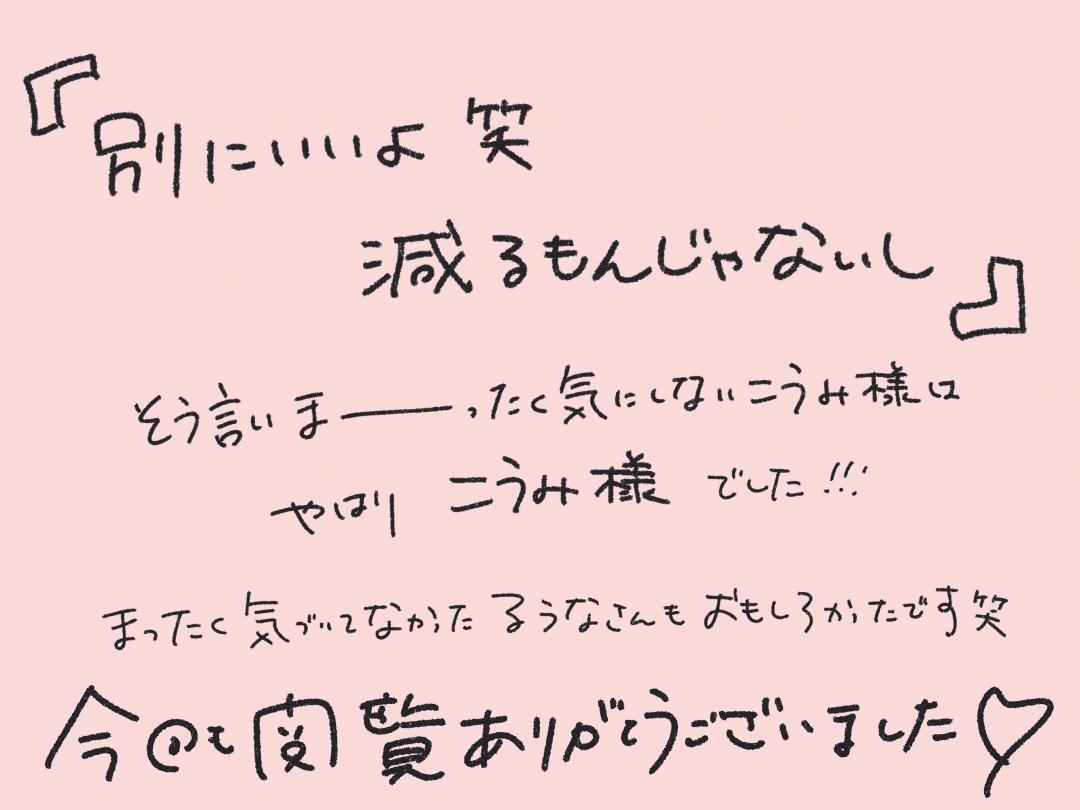 『別にいいよ 笑
減るもんじゃないし』
そう言いま――ったく気にしないこうみ様は
やはり こうみ様 でした!!!
まったく気づいてなかった るうなさんも おもしろかったです笑
今@も閲覧ありがとうございました♡